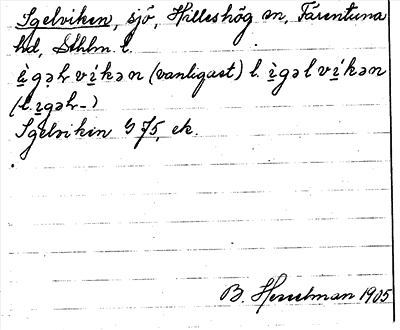 Igelviken, sjö, Hilleshög sn, Färentuna
hd, Sthlm. l.
ìgəl víkən (vanligast) l. ìgəl víkən
(l. ìgəl-)
Igelvikin G 75, ek.
B. Hesselman 1905